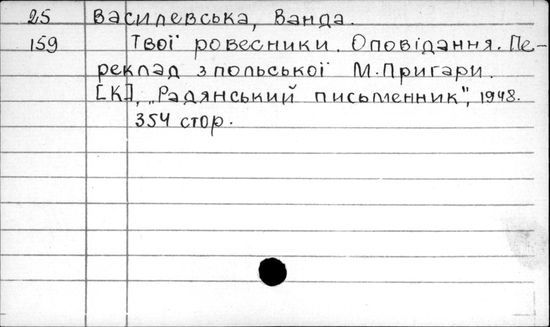 25 Василевська, Ванда.
159 Твої ровесники. Оповідання. Пе-
реклад з польської М. Пригари.
[К], „Радянський письменник", 1948.
354 стор.